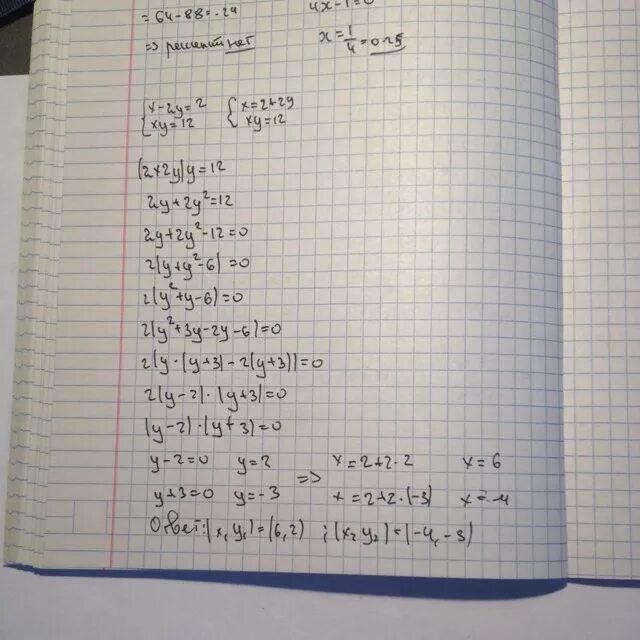 = 64-88=-24
4x-1=0
=> решений нет
x=1/4=0.25
{x-2y=2 {x=2+2y
{xy=12 {xy=12
(2+2y)y=12
2y+2y²=12
2y+2y²-12=0
2(y+y²-6)=0
2(y²+y-6)=0
2(y²+3y-2y-6)=0
2(y·(y+3)-2(y+3))=0
2(y-2)·(y+3)=0
(y-2)·(y+3)=0
y-2=0 y=2 => x=2+2·2 x=6
y+3=0 y=-3 x=2+2·(-3) x=-4
Ответ:(x₁ y₁)=(6,2) ;(x₂ y₂)=(-4,-3)